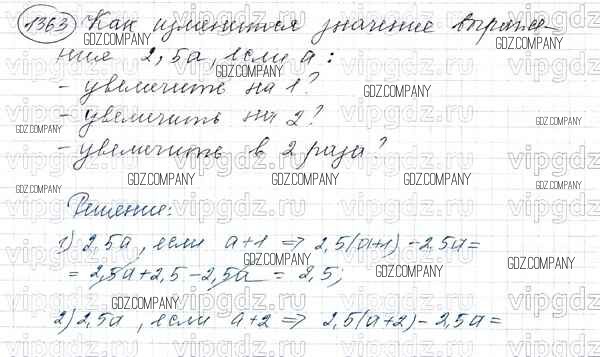 1363 Как изменится значение выраже-
ния 2,5a, если a:
- увеличить на 1?
- увеличить на 2?
- увеличить в 2 раза?
Решение:
1) 2,5a, если a+1 => 2,5(a+1) - 2,5a =
= 2,5a + 2,5 - 2,5a = 2,5;
2) 2,5a, если a+2 => 2,5(a+2) - 2,5a =
GDZ.COMPANY
vipgdz.ru